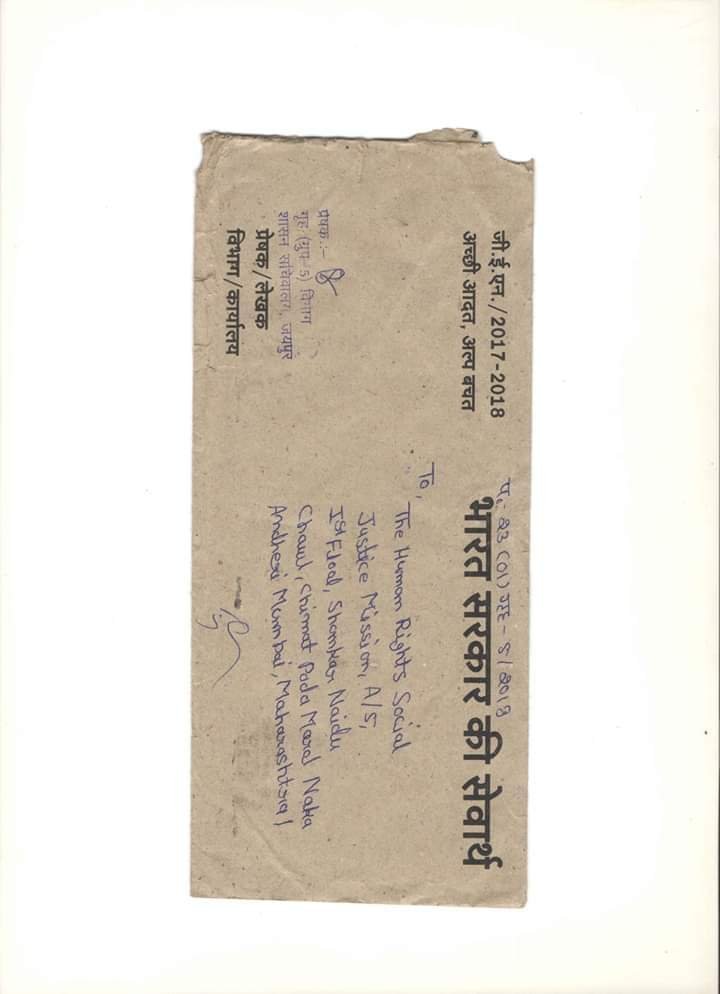 जी.ई.एन./2017-2018
अच्छी आदत, अल्प बचत
प. 23 (01) गृह - 5/2018
भारत सरकार की सेवार्थ
To,
The Human Rights Social
Justice Mission, A/5,
Ist Floal, Shamkar Naidu
Chawl, Chimat Pada Marol Naka
Andheri Mumbai, Maharashtra/
प्रेषक :-
गृह (ग्रुप-5) विभाग
शासन सचिवालय, जयपुर
प्रेषक/लेखक
विभाग/कार्यालय